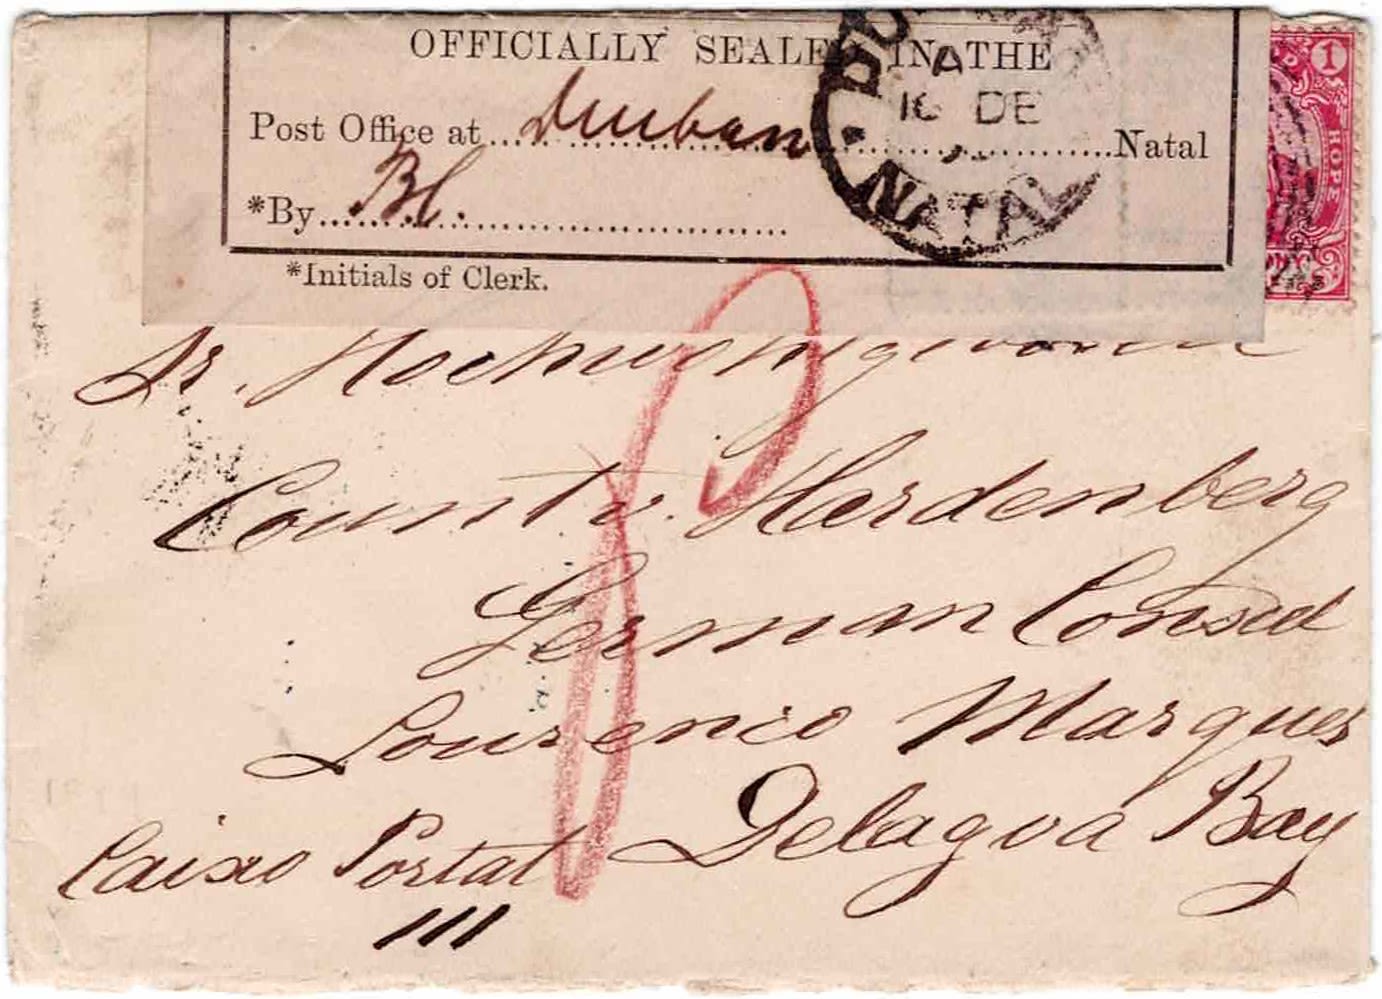 OFFICIALLY SEALED IN THE
Post Office at Durban Natal
*By Bl.
*Initials of Clerk.
DU
A
16 DE
NATAL
1
HOPE
ONY
Sr.
County. Hardenberg
German Consul
Lourenco Marques
Delagoa Bay
Caixo Postal
111